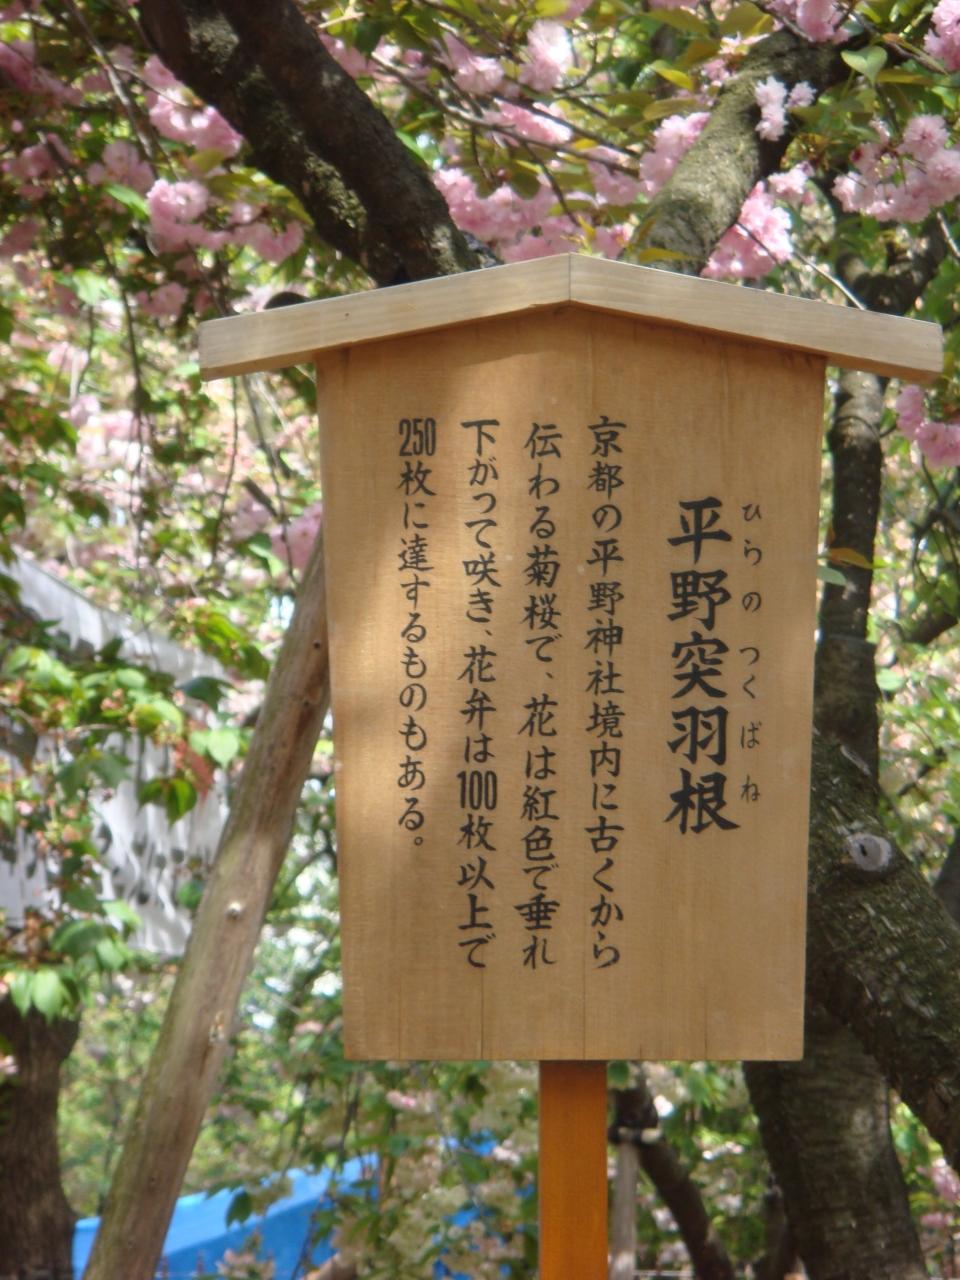 ひらの つくばね
平野突羽根
京都の平野神社境内に古くから
伝わる菊桜で、花は紅色で垂れ
下がって咲き、花弁は100枚以上で
250枚に達するものもある。